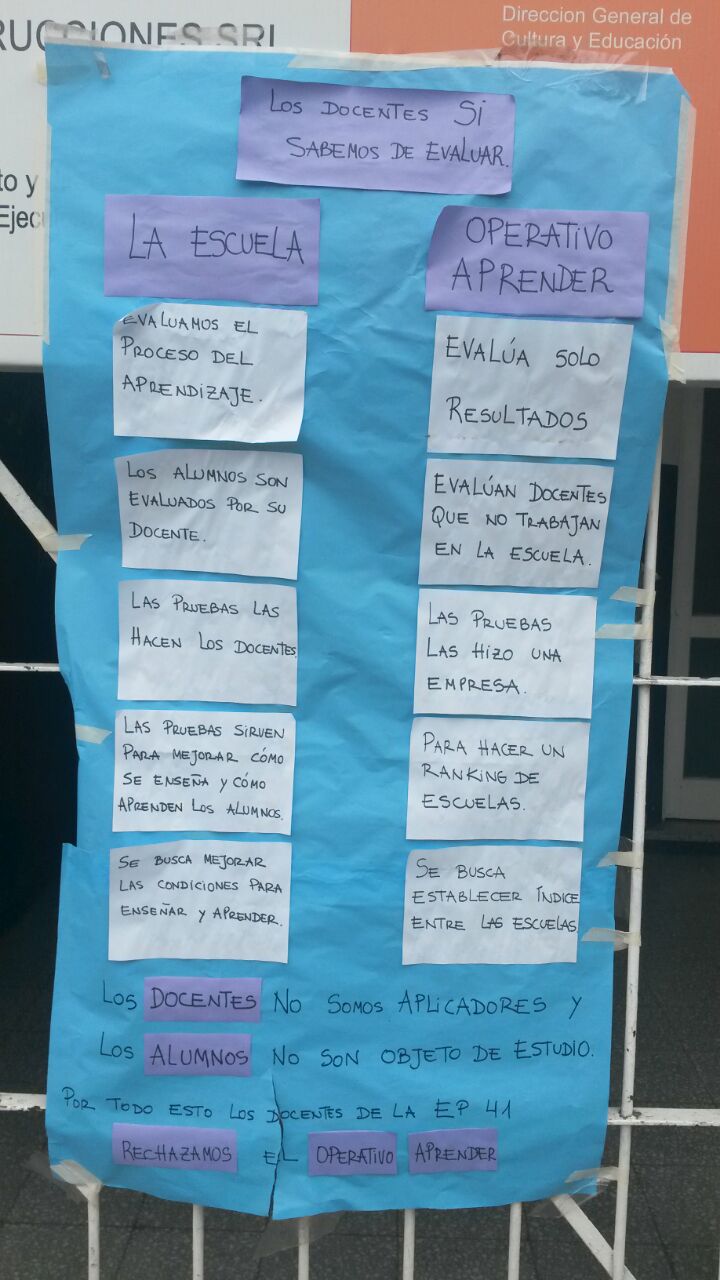 RUCCIONES SRL
Direccion General de
Cultura y Educación
to y
Ejec
LOS DOCENTES SI
SABEMOS DE EVALUAR.
LA ESCUELA
EVALUAMOS EL
PROCESO DEL
APRENDIZAJE.
LOS ALUMNOS SON
EVALUADOS POR SU
DOCENTE.
LAS PRUEBAS LAS
HACEN LOS DOCENTES
LAS PRUEBAS SIRVEN
PARA MEJORAR CÓMO
SE ENSEÑA Y CÓMO
APRENDEN LOS ALUMNOS.
SE BUSCA MEJORAR
LAS CONDICIONES PARA
ENSEÑAR Y APRENDER.
OPERATIVO
APRENDER
EVALÚA SOLO
RESULTADOS
EVALÚAN DOCENTES
QUE NO TRABAJAN
EN LA ESCUELA.
LAS PRUEBAS
LAS HIZO UNA
EMPRESA.
PARA HACER UN
RANKING DE
ESCUELAS.
SE BUSCA
ESTABLECER ÍNDICE
ENTRE LAS ESCUELAS
LOS DOCENTES NO SOMOS APLICADORES Y
LOS ALUMNOS NO SON OBJETO DE ESTUDIO.
POR TODO ESTO LOS DOCENTES DE LA EP 41
RECHAZAMOS EL OPERATIVO APRENDER